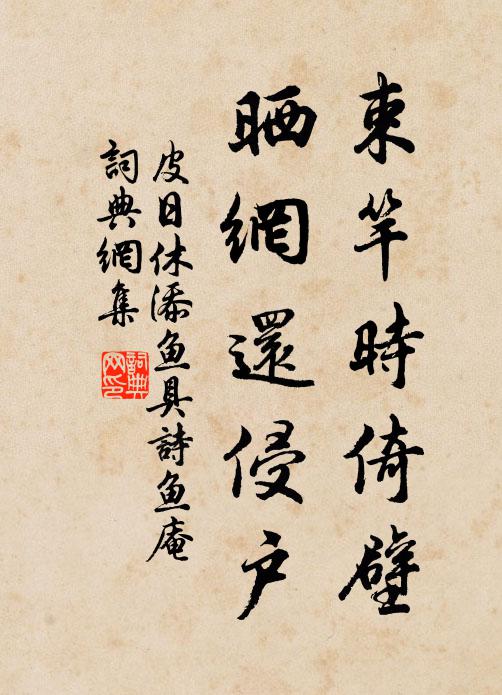 束竿時倚壁
晒網還侵户
皮日休添鱼具詩鱼庵
詞典網集
詞典网印